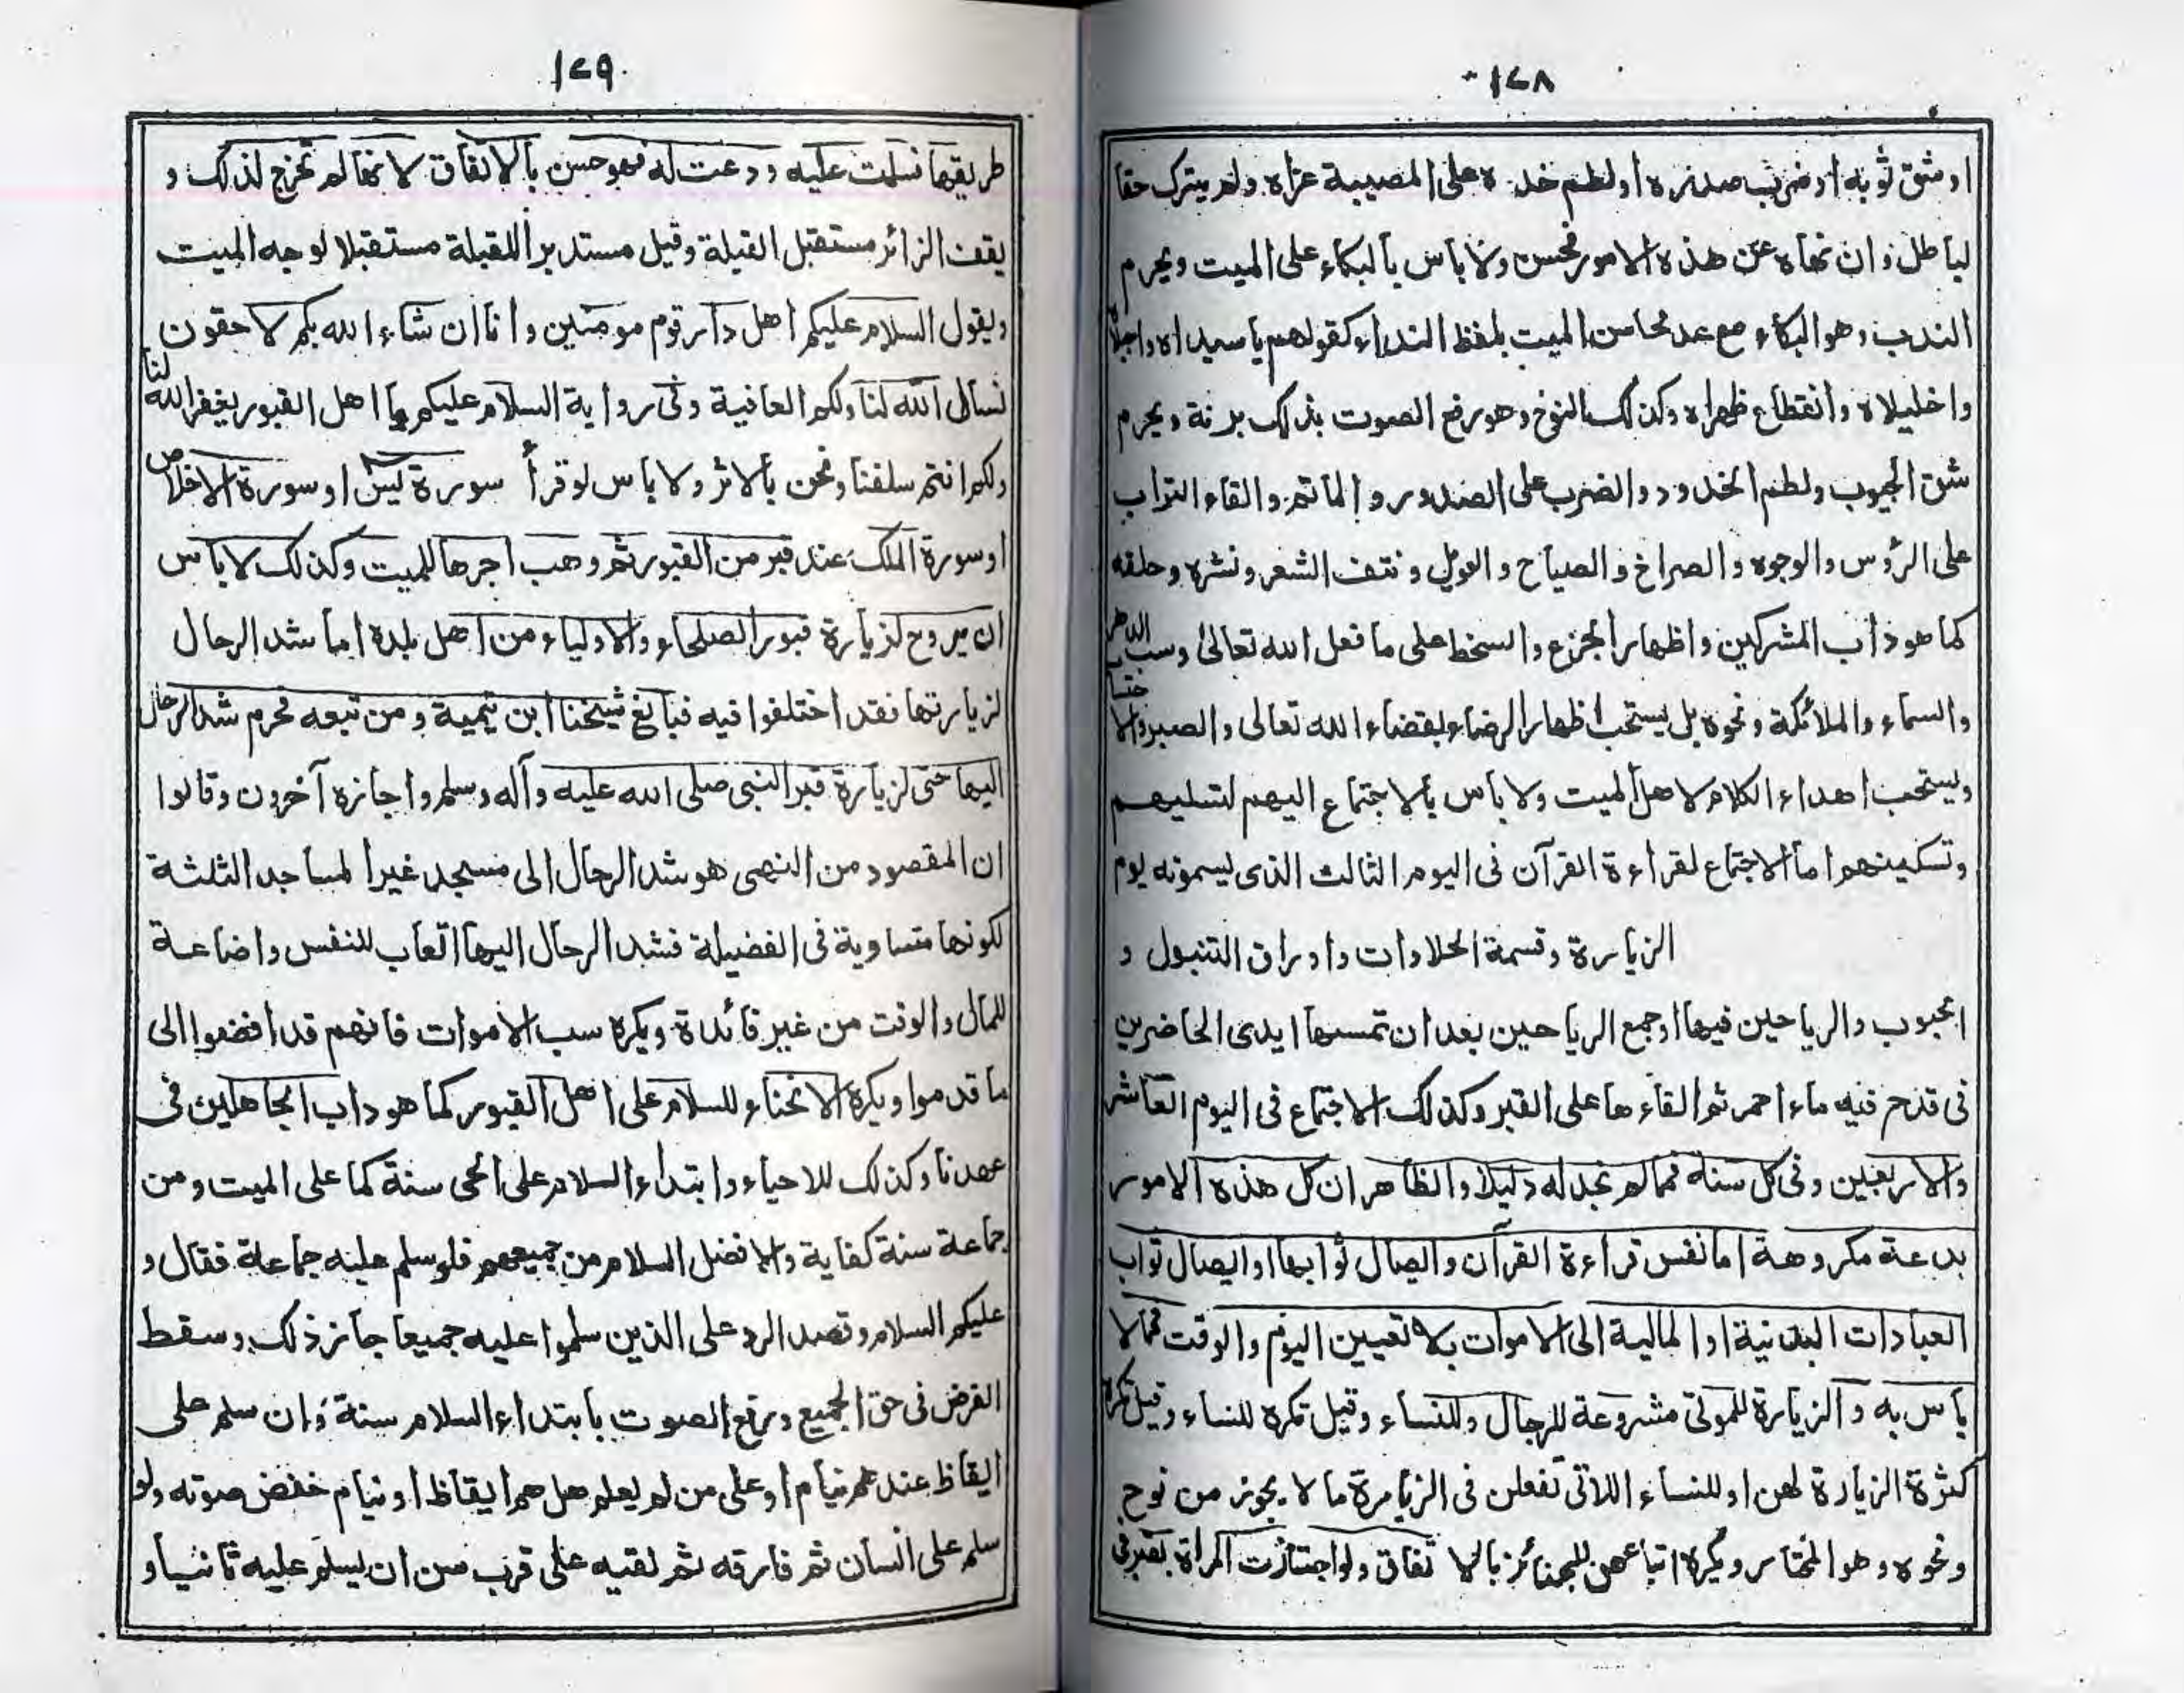 ١٢٨
اوشق ثوبه اوضرب صدره اولطم خده على المصيبة عزاه ولم يترك حقا
لباطل وان نهاه عن هذه الامور فحسن ولا باس بالبكاء على الميت ويحرم
الندب وهو البكاء مع عد محاسن الميت بلفظ النداء كقولهم يا سيداه واجبلاه
واخليلاه وانقطاع ظهراه وكذلك النوح وهو رفع الصوت بذلك برنة ويحرم
شق الجيوب ولطم الخدود والضرب على الصدور والماتم والقاء التراب
على الرؤس والوجوه والصراخ والصياح والعويل ونتف الشعر ونشره وحلقه
كما هو داب المشركين واظهار الجزع والسخط على ما فعل الله تعالى وسب الدهر
والسماء والملائكة ونحوه بل يستحب اظهار الرضاء بقضاء الله تعالى والصبر والاحتساب
ويستحب اهداء الكلام لاهل الميت ولا باس بالاجتماع اليهم لتسليهم
وتسكينهم اما الاجتماع لقراءة القرآن فى اليوم الثالث الذى يسمونه يوم
الزيارة وقسمة الحلاوات واوراق التنبول و
الحبوب والرياحين فيها اوجمع الرياحين بعد ان تمسها ايدى الحاضرين
فى قدح فيه ماء احمر ثم القاءها على القبر وكذلك الاجتماع فى اليوم العاشر
والاربعين وفى كل سنة فمما لم نجد له دليلا والظاهر ان كل هذه الامور
بدعة مكروهة اما نفس قراءة القرآن وايصال ثوابها اوايصال ثواب
العبادات البدنية او المالية الى الاموات بلا تعيين اليوم والوقت فمما لا
باس به والزيارة للموتى مشروعة للرجال وللنساء وقيل تكره للنساء وقيل تكره
كثرة الزيارة لهن او للنساء اللاتى تفعلن فى الزيارة ما لا يجوز من نوح
ونحوه وهو المختار ويكره اتباعهن للجنائز بالاتفاق ولو اجتازت المراة بقبر فى
١٢٩
طريقها فسلمت عليه ودعت له فهو حسن بالاتفاق لانها لم تخرج لذلك و
يقف الزائر مستقبل القبلة وقيل مستدبرا للقبلة مستقبلا لوجه الميت
ويقول السلام عليكم اهل دار قوم مومنين وانا ان شاء الله بكم لاحقون
نسال الله لنا ولكم العافية وفى رواية السلام عليكم يا اهل القبور يغفر الله لنا
ولكم انتم سلفنا ونحن بالاثر ولا باس لو قرأ سورة يس او سورة الاخلاص
اوسورة الملك عند قبر من القبور ثم وهب اجرها للميت وكذلك لا باس
ان يروح لزيارة قبور الصلحاء والاولياء من اهل بلده اما شد الرحال
لزيارتها فقد اختلفوا فيه فبالغ شيخنا ابن تيمية ومن تبعه فحرم شد الرحال
اليها حتى لزيارة قبر النبى صلى الله عليه وآله وسلم واجازه آخرون وقالوا
ان المقصود من النهى هو شد الرحال الى مسجد غير المساجد الثلثة
لكونها متساوية فى الفضيلة فشد الرحال اليها اتعاب للنفس واضاعة
للمال والوقت من غير فائدة ويكره سب الاموات فانهم قد افضوا الى
ما قدموا ويكره الانحناء للسلام على اهل القبور كما هو داب الجاهلين فى
عهدنا وكذلك للاحياء وابتداء السلام على الحى سنة كما على الميت ومن
جماعة سنة كفاية والافضل السلام من جميعهم فلو سلم عليه جماعة فقال و
عليكم السلام وقصد الرد على الذين سلموا عليه جميعا جاز ذلك وسقط
الفرض فى حق الجميع ورفع الصوت بابتداء السلام سنة وان سلم على
ايقاظ عندهم نيام اوعلى من لم يعلم هل هم ايقاظ اونيام خفض صوته ولو
سلم على انسان ثم فارقه ثم لقيه على قرب سن ان يسلم عليه ثانيا و